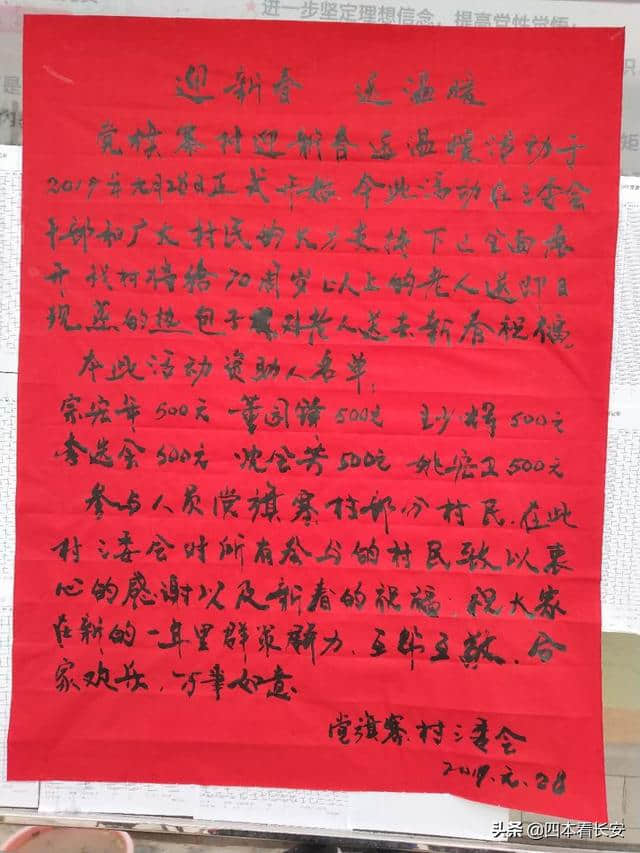 进一步坚定理想信念，提高党性觉悟；
迎新春 送温暖
党旗寨村迎新春送温暖活动于
2019年元月28日正式开始，今此活动在三委会
干部和广大村民的大力支持下已全面展
开 我村将给70周岁以上的老人送即日
现蒸的热包子 对老人送去新春祝福。
本此活动资助人名单：
宗宏年500元 董园锋500元 王少辉500元
李选会500元 沈会芳500元 姚宏卫500元
参与人员党旗寨村部分村民，在此
村三委会对所有参与的村民致以衷
心的感谢以及新春的祝福，祝大家
在新的一年里群策群力，互帮互敬，合
家欢乐，万事如意
党旗寨村三委会
2019.元.28
头条 @四本看长安